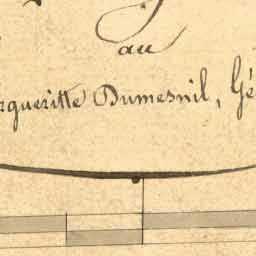 au
rgueritte Dumesnil, Gé